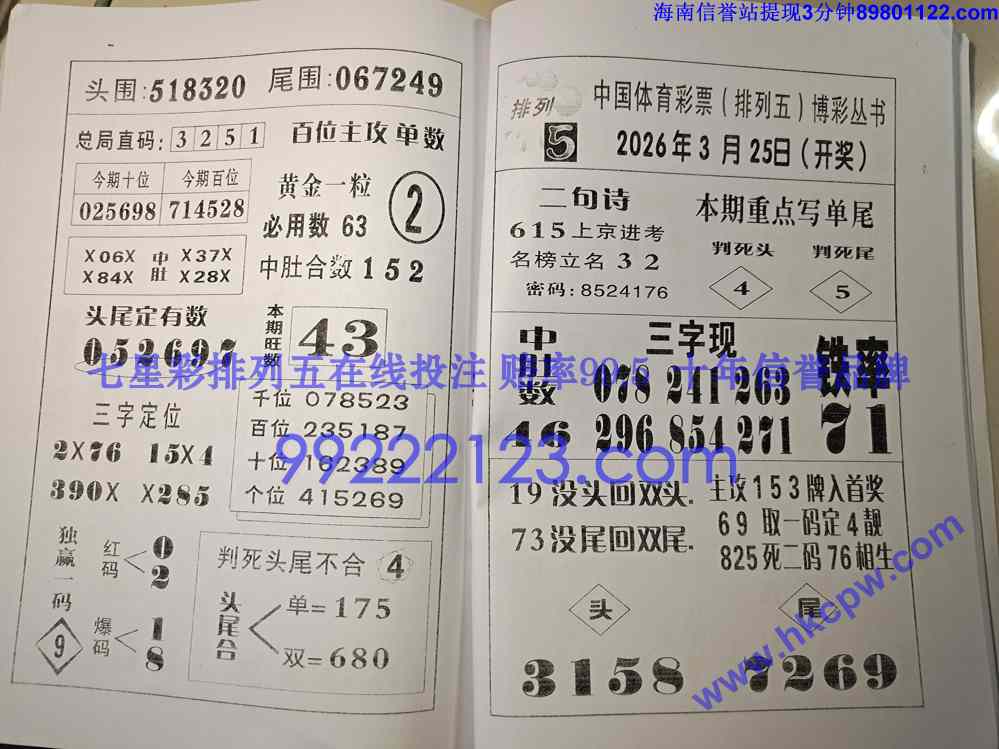 海南信誉站提现3分钟89801122.com
头围:518320 尾围:067249
总局直码: 3 2 5 1 百位主攻单数
今期十位 今期百位
025698 714528
黄金一粒 2
必用数 63
X06X 中 X37X
X84X 肚 X28X
中肚合数 1 5 2
头尾定有数
052697
本期旺数 43
三字定位
2X76 15X4
390X X285
千位 078523
百位 235187
十位 182389
个位 415269
独赢一码 9
红码 0 2
爆码 1 8
判死头尾不合 4
头尾合 单=175
双=680
排列 5
中国体育彩票(排列五)博彩丛书
2026年3月25日(开奖)
二句诗
615上京进考
名榜立名 3 2
密码:8524176
本期重点写单尾
判死头 判死尾
4 5
中肚数 46
三字现
078 241 263
296 854 271
铁率 71
19没头回双头.
73没尾回双尾.
主攻153牌入首奖
69取一码定4靓
825死二码76相生
头 尾
3158 7269
七星彩排列五在线投注 赔率99.5 十年信誉品牌
99222123.com
www.hkcpw.com